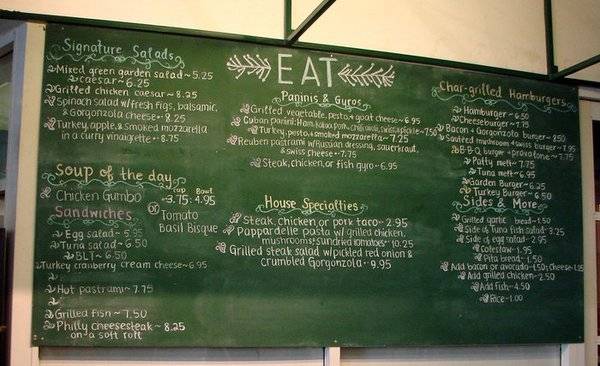 Signature Salads
Mixed green garden salad~5.25
caesar~6.25
Grilled chicken caesar~8.25
Spinach salad w/fresh figs, balsamic,
& Gorgonzola cheese~8.25
Turkey, apple, & smoked mozzarella
in a curry vinaigrette~8.75
Soup of the day
Cup Bowl
Chicken Gumbo ~3.75 4.95
OR Tomato
Basil Bisque
Sandwiches
Egg salad~5.95
Tuna salad~6.50
BLT~6.50
Turkey cranberry cream cheese~6.95
Hot pastrami~7.75
Grilled fish~7.50
Philly cheesesteak~8.25
on a soft roll
EAT
Paninis & Gyros
Grilled vegetable, pesto & goat cheese~6.95
Cuban Panini: Ham, kalua pork, chili aioli, swiss, pickle~7.50
Turkey, pesto & smoked mozzarella~7.25
Reuben pastrami w/Russian dressing, sauerkraut,
& swiss cheese~7.75
Steak, chicken, or fish gyro~6.95
House Specialties
Steak, chicken, or pork taco~2.95
Pappardelle pasta w/ grilled chicken,
mushrooms & sundried tomatoes~10.25
Grilled steak salad w/pickled red onion &
crumbled Gorgonzola~9.95
Char-grilled Hamburgers
Hamburger~6.50
Cheeseburger~7.75
Bacon & Gorgonzola burger~8.50
Sauteed mushroom & swiss burger~7.95
B-B-Q burger & provolone~7.75
Patty melt~7.75
Tuna melt~6.95
Garden Burger~6.25
Turkey Burger~6.50
Sides & More
Grilled garlic bread~1.50
Side of Tuna fish salad~3.25
Side of egg salad~2.95
Coleslaw~1.95
Pita bread~1.50
Add bacon or avocado~1.50; Cheese~1.05
Add grilled chicken~2.50
Add fish~4.50
Rice~1.00